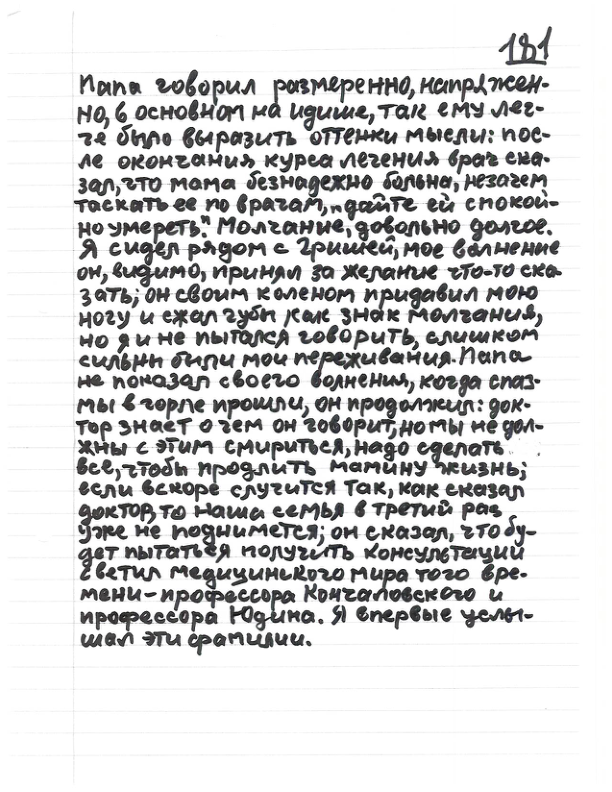 181
Папа говорил размеренно, напряжен-
но, в основном на идише, так ему лег-
че было выразить оттенки мысли: пос-
ле окончания курса лечения врач ска-
зал, что мама безнадежно больна, незачем
таскать ее по врачам, „дайте ей спокой-
но умереть". Молчание, довольно долгое.
Я сидел рядом с Гришей, мое волнение
он, видимо, принял за желание что-то ска-
зать; он своим коленом придавил мою
ногу и сжал губы как знак молчания,
но я и не пытался говорить, слишком
сильны были мои переживания. Папа
не показал своего волнения, когда спаз-
мы в горле прошли, он продолжил: док-
тор знает о чем он говорит, но мы не дол-
жны с этим смириться, надо сделать
все, чтобы продлить мамину жизнь;
если вскоре случится так, как сказал
доктор, то наша семья в третий раз
уже не поднимется; он сказал, что бу-
дет пытаться получить консультации
светил медицинского мира того вре-
мени - профессора Кончаловского и
профессора Юдина. Я впервые услы-
шал эти фамилии.